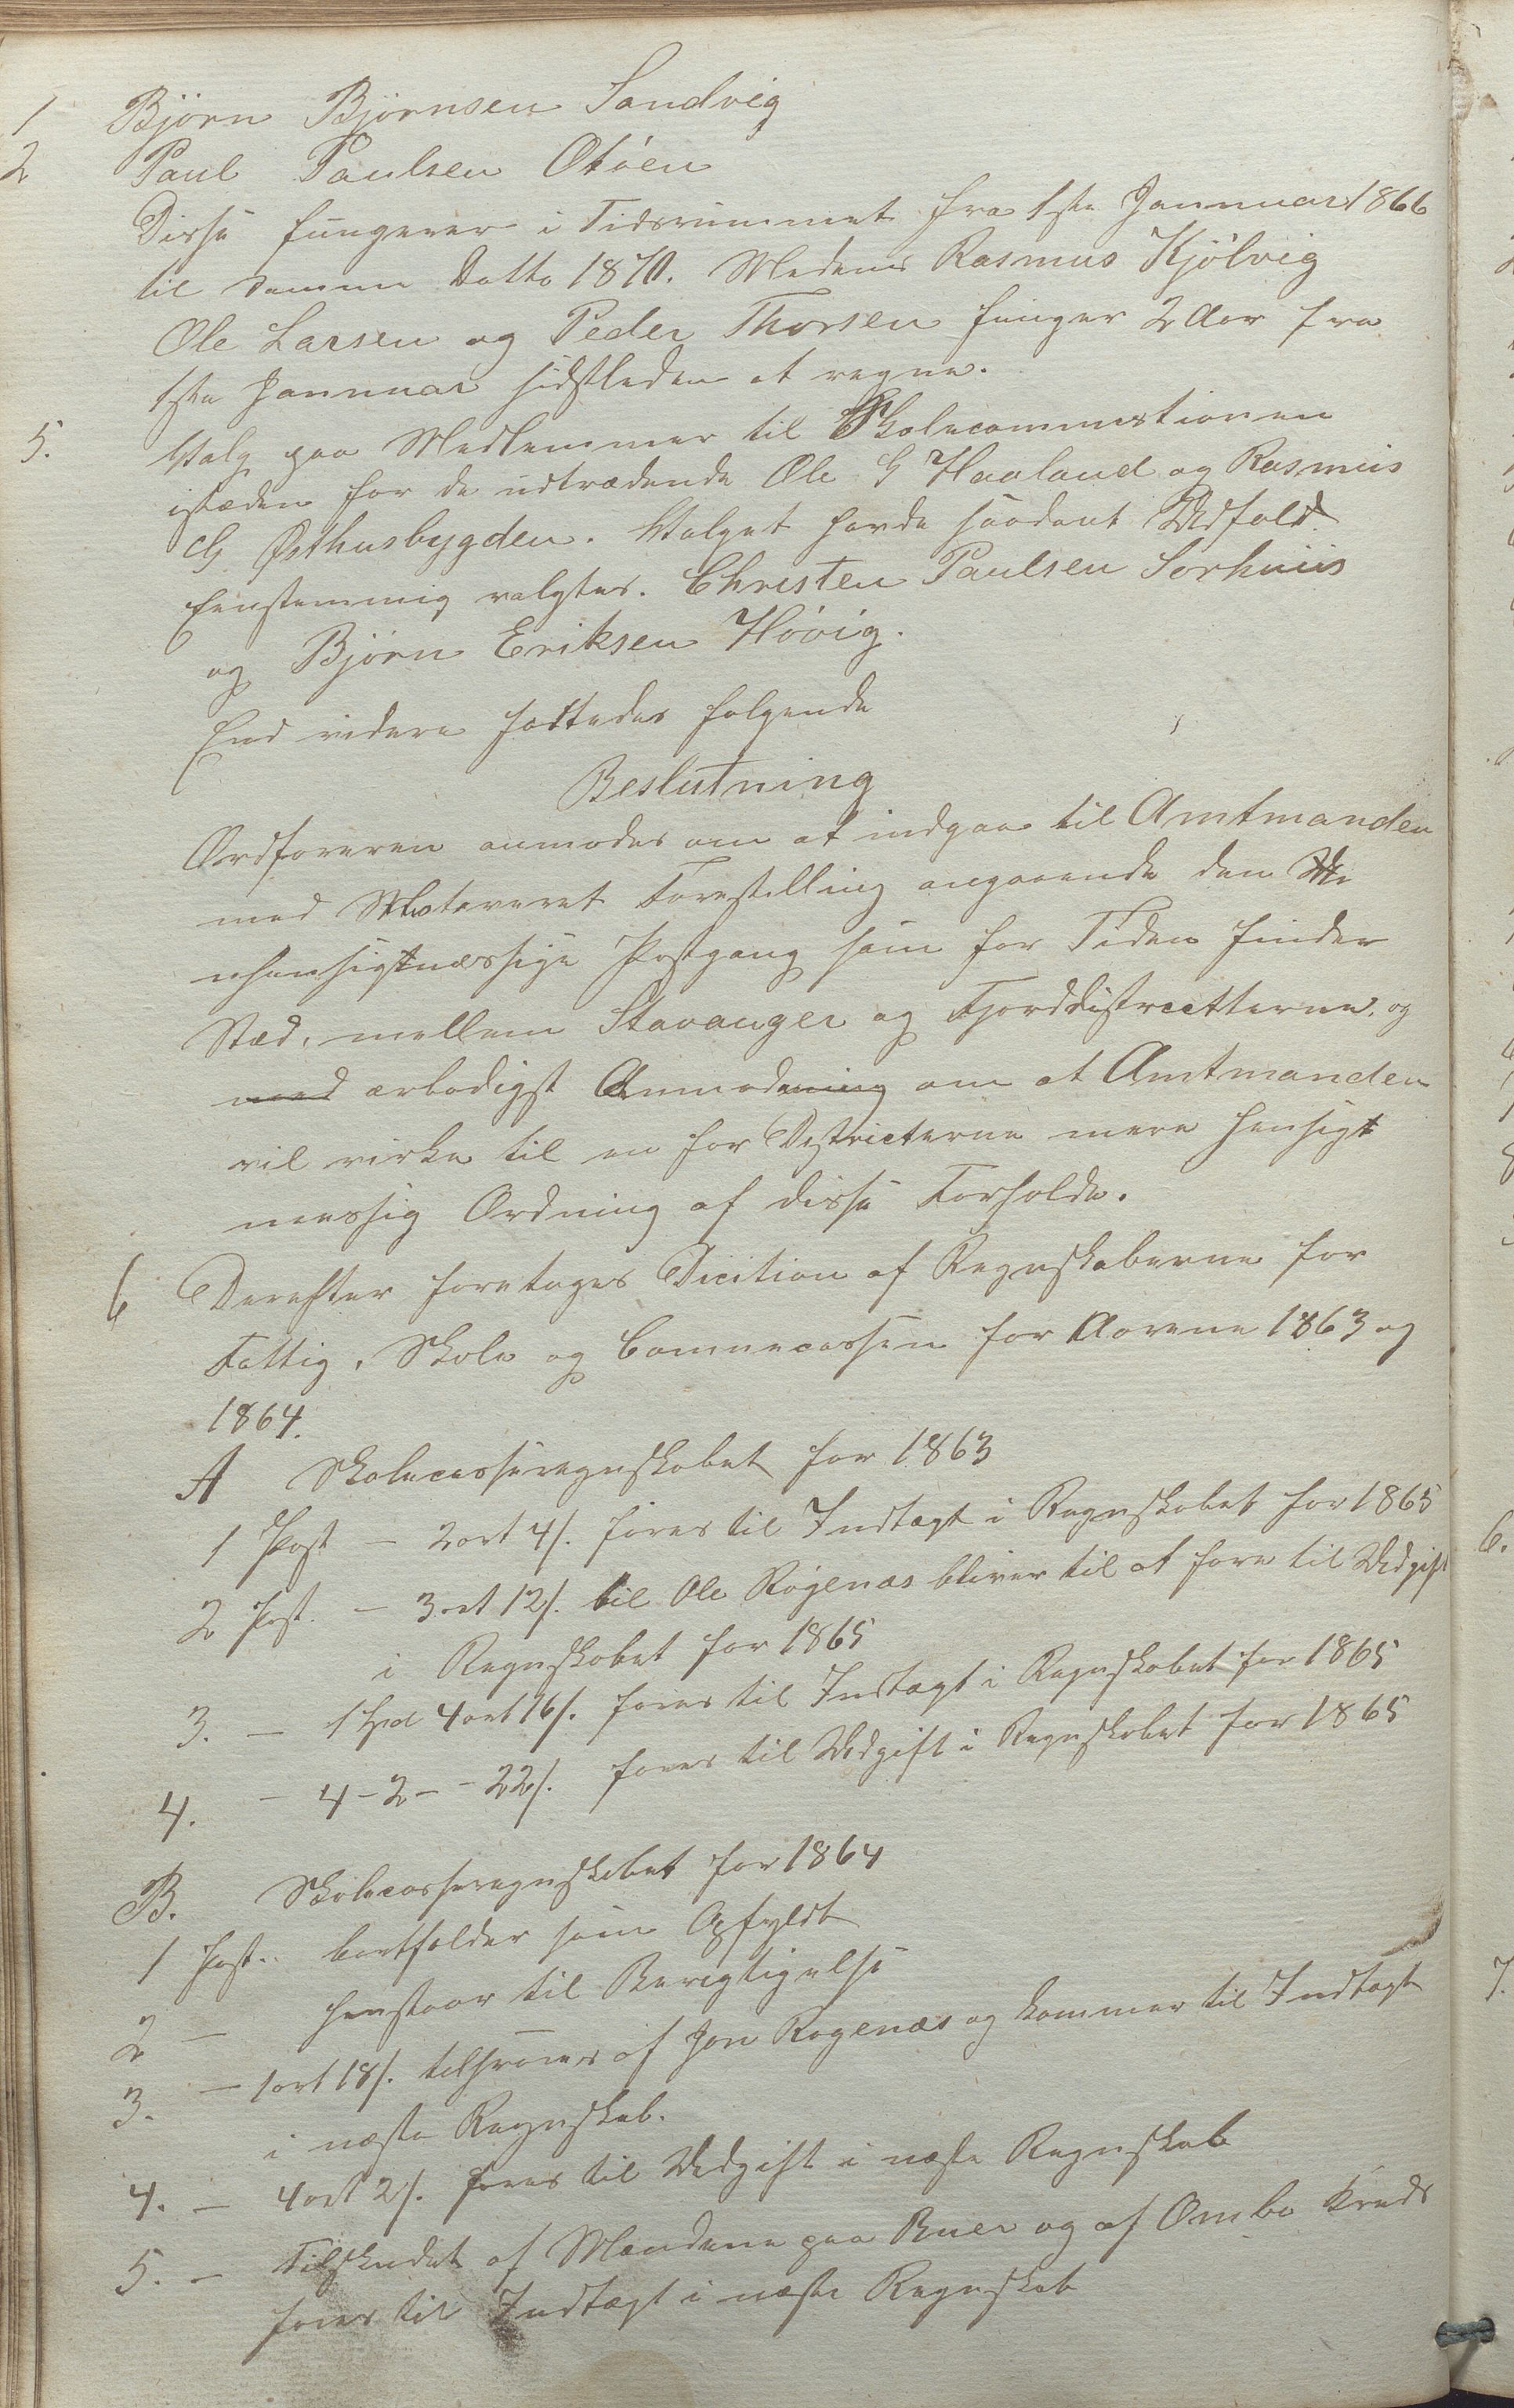 1 Bjørn Bjørnsen Sandvig
2 Paul Paulsen Otøen
Disse fungerer i Tidsrummet fra 1ste Jannuar 1866
til samme Datto 1870. Medens Rasmus Kjølvig
Ole Larsen og Peder Thorsen funger 2 Aar fra
1ste Jannuar sidstleden at regne.
5. Valg paa Medlemmer til Skolecommistionen
istæden for de udtrædende Ole G Haaland og Rasmus
G Østhusbygden. Valget havde saadant Udfald
Eenstemmig valgtes. Christen Paulsen Sørhuus
og Bjørn Eriksen Høvig.
End videre fattedes følgende
Beslutning
Ordføreren anmodes om at indgaa til Amtmanden
med Motiveret Forestilling angaaende den U
ehensigtmæssige Postgang som for Tiden finder
Sted, mellem Stavanger og Fjorddistrictterne, og
med ærbødigst Anmodning om at Amtmanden
vil virke til en for Districterne mere hensigt
mæssig Ordning af disse Forholde.
6 Derefter foretages Dicition af Regnskaberne for
Fattig, Skole og Communecassen for Aarene 1863 og
1864.
A Skolecasseregnskabet for 1863
1 Post - 2 ort 4 s. føres til Indtægt i Regnskabet for 1865
2 Post. - 3 ort 12 s. til Ole Røgenæs bliver til at føre til Udgift
i Regnskabet for 1865
3. - 1 Spd 4 ort 16 s. føres til Indtægt i Regnskabet for 1865
4. - 4 - 2 - - 22 s. føres til Udgift i Regnskabet for 1865
B. Skolecasseregnskabet for 1864
1 Post. bortfalder som Opfyldt
2 - henstaar til Berigtigelse
3. - 1 ort 18 s. tilsvares af Jon Røgenæs og kommer til Indtægt
i næste Regnskab.
4. - 4 ort 2 s. føres til Udgift i næste Regnskab
5. - Tilskudet af Mændene paa Buer og af Ombo Kreds
føres til Indtægt i næste Regnskab
6.
7.